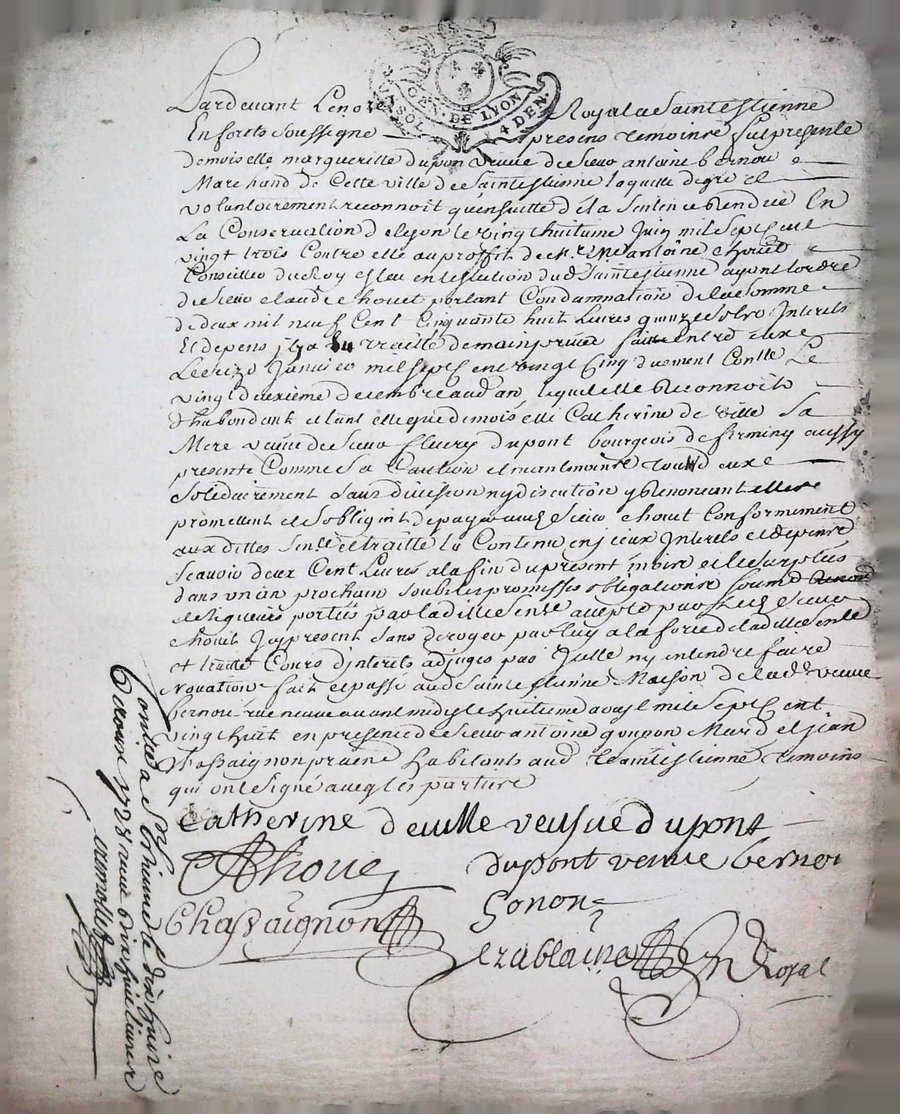 GEN. DE LYON
UN SOL 4 DEN.
Pardevant Le no[tai]re Royal a Saint estienne
En forets Soussigne presens temoins fut presente
demoiselle margueritte dupon veuve de Sieur antoine bernou
Marchand de Cette ville de Saint estienne laquelle de gre et
volontairement reconnoit qu'ensuitte de la Sentence Rendue En
La Conservation de Lyon le vingt huitieme Juin mil Sept cent
vingt trois Contre elle au proffit de antoine Chovet
Conseiller du Roy eslu en lellection dud Saint estienne ayant lordre
de Sieur claude Chovet portant Condamnation de la Somme
de deux mil neuf Cent Cinquante huit Livres quinze Sols Interets
Et depens il y a eu traitté de main privée faitte entre eux
Le Seize Janvier mil Sept cent vingt Cinq duement Contlle Le
vingt deuxieme decembre aud an, lequel elle Reconnoit
d'habondant et tant elle que demoiselle Catherine de ville Sa
Mere veuve de Sieur fleury dupont bourgeois de firminy aussy
presente Comme Sa Caution et neantmoins tous d eux
Solidairement Sans division ny discution y Renonceant
promettent et Sobligent de payer aud Sieur Chovet Conformement
aux dittes Sence et traitté Le Contenu en iceux Interets et depens
Scavoir deux Cent Livres a la fin du present mois et le Surplus
dans un an prochain Soub les promesses obligations Soum
et Rigueurs portées par la ditte Sence accepté par Led Sieur
Chovet Icy present Sans deroger par luy a la force de la ditte Sentce
et traitté Cours d'interets adjugés par Icelle ny intendre faire
novation fait et passé aud Saint estienne Maison de lad veuve
bernou rue neuve avant midy le huitieme avril mil Sept Cent
vingt huit en presence de Sieur antoine gonon Mard et jean
Chassaignon praen habitants aud Saint estienne temoins
qui ont Signé avec les parties
Catherine deville veufue dupont
AChovet dupont veuve bernou
Chassaignon Gonon
Royal
Contlé a St Etienne le dix huit
avril 1728 dix huit livres